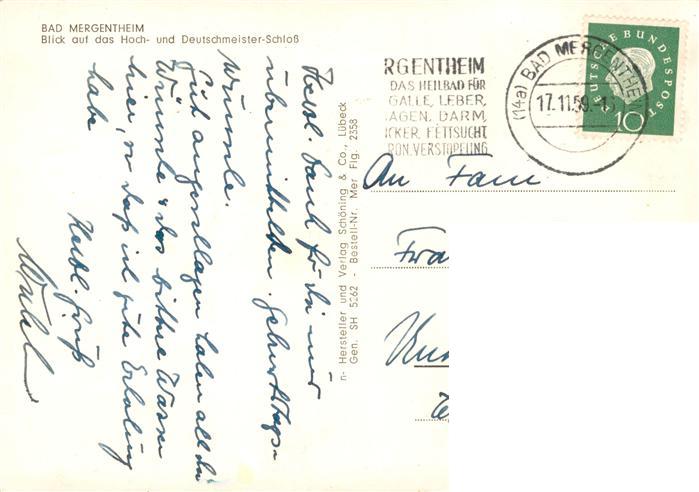 BAD MERGENTHEIM
Blick auf das Hoch- und Deutschmeister-Schloß
Herzl. Dank für die mir
übermittelten Geburtstags-
wünsche.
Gut angeschlagen haben all die
Wünsche & das bittre Wasser
hier, so daß ich gute Erholung
habe
Herzl. Gruß
n- Hersteller und Verlag Schöning & Co., Lübeck
Gen. SH 5262 - Bestell-Nr. Mer Flg. 2358
RGENTHEIM
DAS HEILBAD FÜR
GALLE, LEBER,
AGEN, DARM,
CKER, FETTSUCHT
RON. VERSTOPFUNG
(14a) BAD MERGENTHEIM
17.11.59
DEUTSCHE BUNDESPOST
10
An Fam
Fra